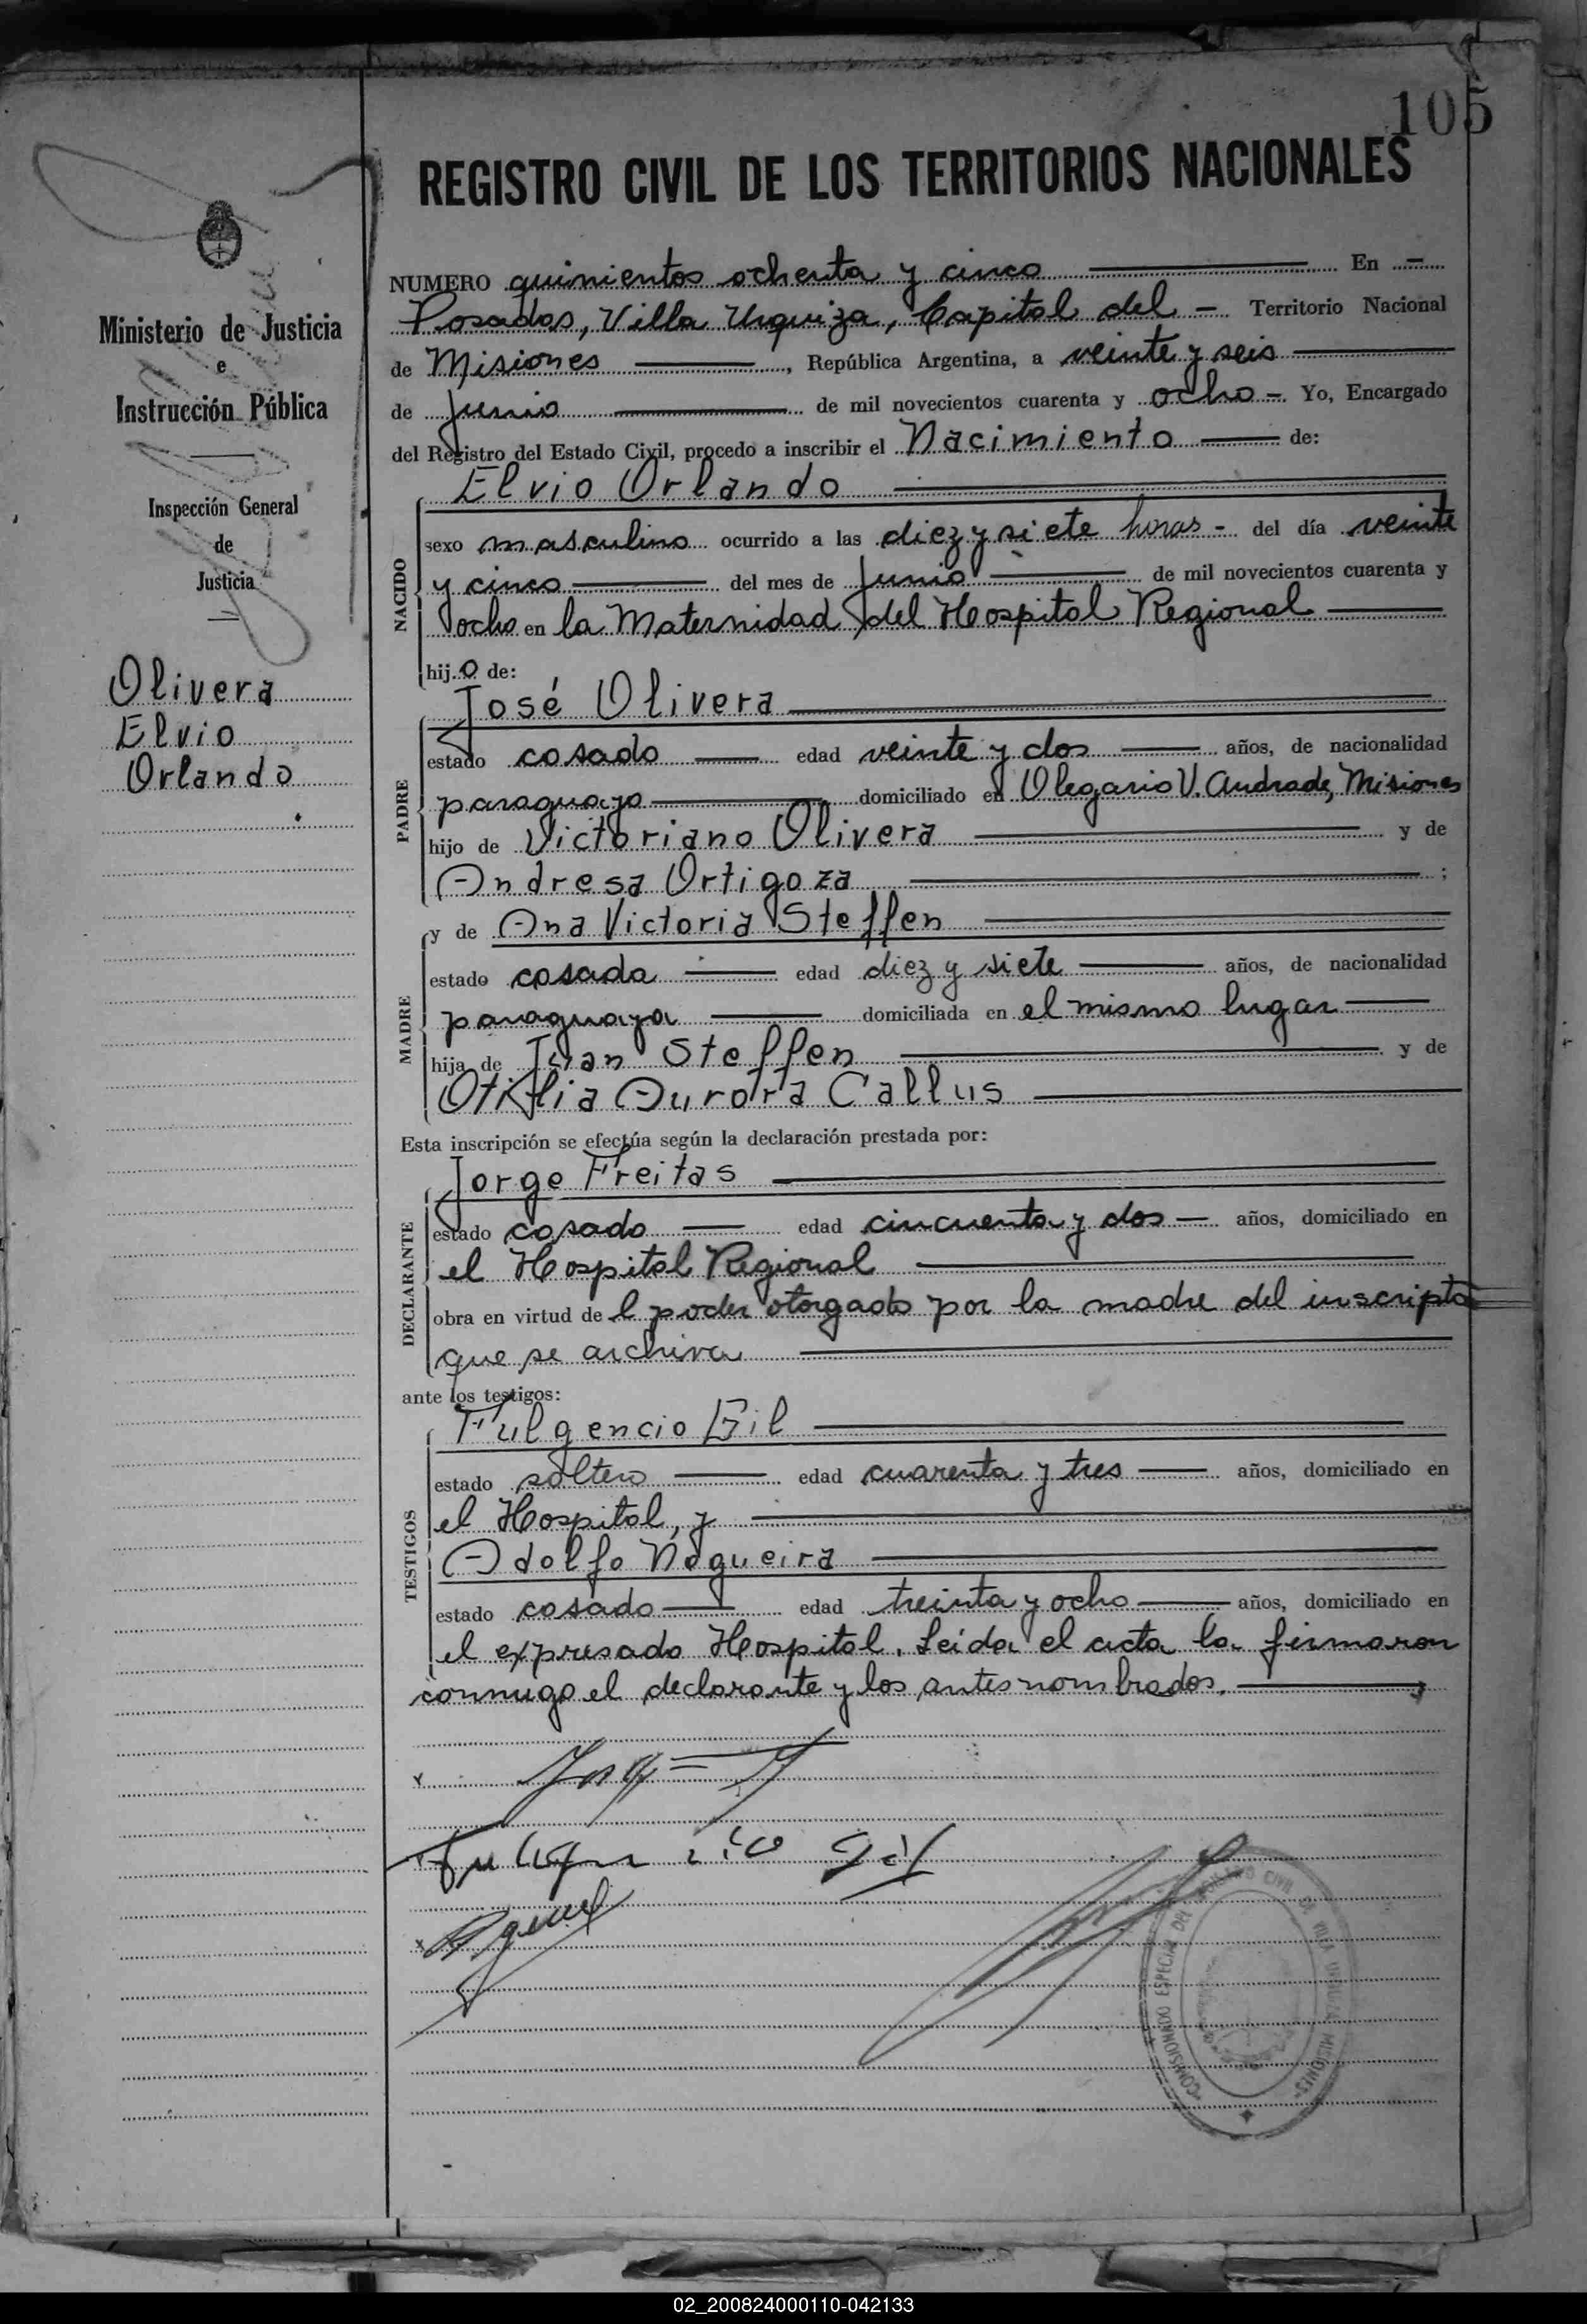 105
REGISTRO CIVIL DE LOS TERRITORIOS NACIONALES
Ministerio de Justicia
e
Instrucción Pública
Inspección General
de
Justicia
Olivera
Elvio
Orlando
NUMERO quinientos ochenta y cinco En
Posadas, Villa Urquiza, Capital del - Territorio Nacional
de Misiones, República Argentina, a veinte y seis
de Junio de mil novecientos cuarenta y ocho - Yo, Encargado
del Registro del Estado Civil, procedo a inscribir el Nacimiento de:
NACIDO
Elvio Orlando
sexo masculino ocurrido a las diez y siete horas - del día veinte
y cinco del mes de Junio de mil novecientos cuarenta y
ocho en la Maternidad del Hospital Regional
hijo de:
PADRE
José Olivera
estado casado edad veinte y dos años, de nacionalidad
paraguayo domiciliado en Olegario V. Andrade, Misiones
hijo de Victoriano Olivera y de
Andresa Ortigoza ;
MADRE
y de Ana Victoria Steffen
estado casada edad diez y siete años, de nacionalidad
paraguaya domiciliada en el mismo lugar
hija de Juan Steffen y de
Otilia Aurora Callus
Esta inscripción se efectúa según la declaración prestada por:
DECLARANTE
Jorge Freitas
estado casado edad cincuenta y dos - años, domiciliado en
el Hospital Regional
obra en virtud de l poder otorgado por la madre del inscripto
que se archiva
ante los testigos:
TESTIGOS
Fulgencio Gil
estado soltero edad cuarenta y tres años, domiciliado en
el Hospital, y
Adolfo Nogueira
estado casado edad treinta y ocho años, domiciliado en
el expresado Hospital. Leida el acta la firmaron
conmigo el declarante y los antes nombrados.
Fulgencio Gil
COMISIONADO ESPECIAL DEL REGISTRO CIVIL DE VILLA URQUIZA MISIONES
02_200824000110-042133